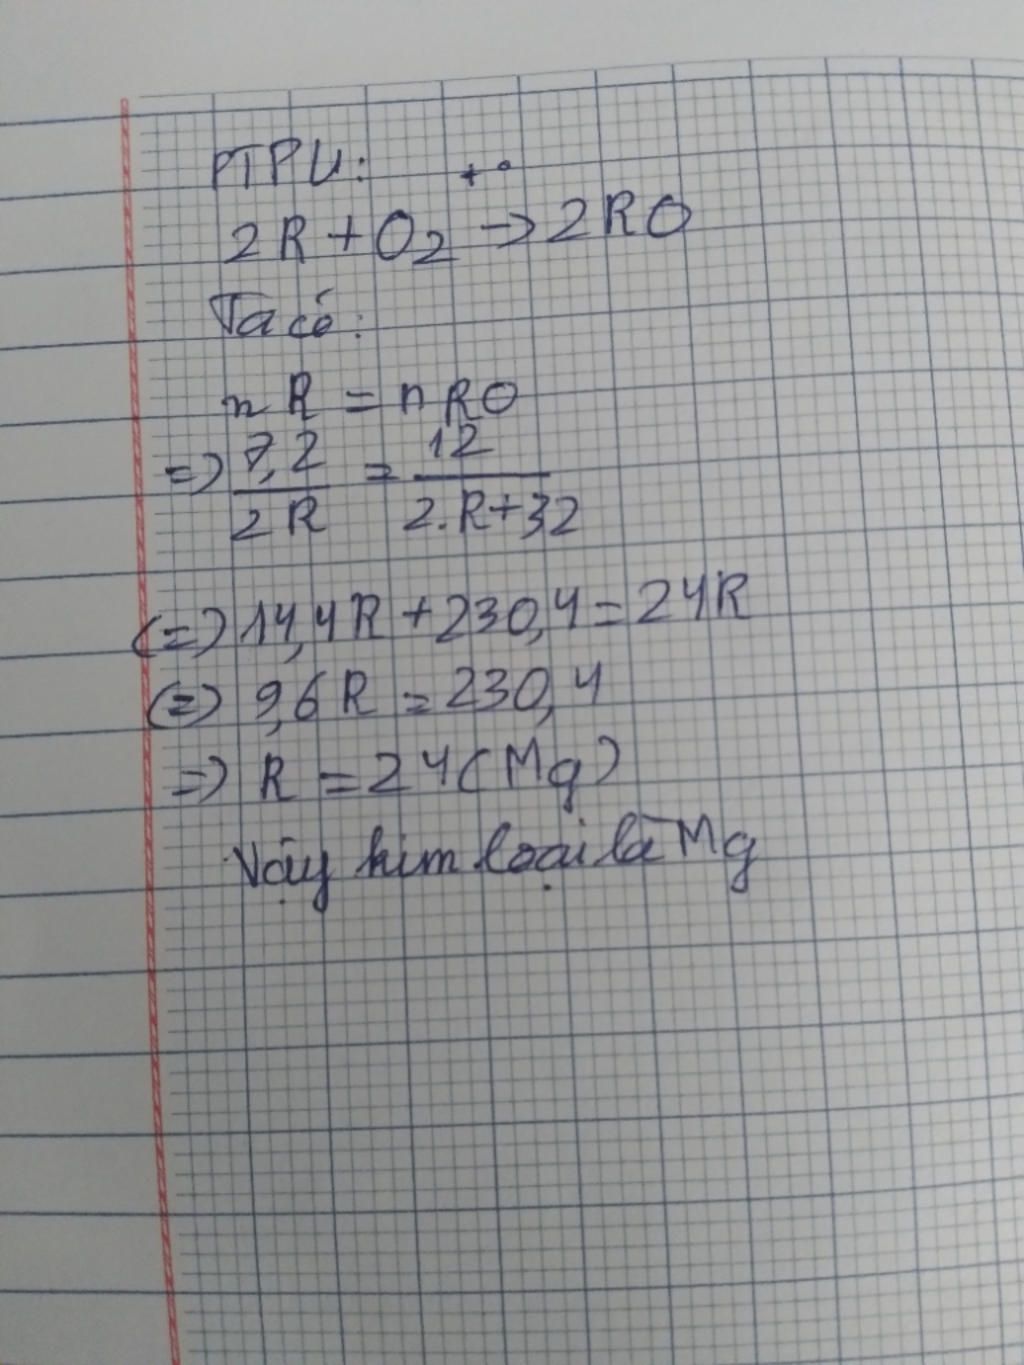 PTPU:
t°
2R + O2 → 2RO
Ta có:
nR = nRO
=> 7,2/2R = 12/2.R+32
(=) 14,4R + 230,4 = 24R
(=) 9,6R = 230,4
=> R = 24 (Mg)
Vậy kim loại là Mg